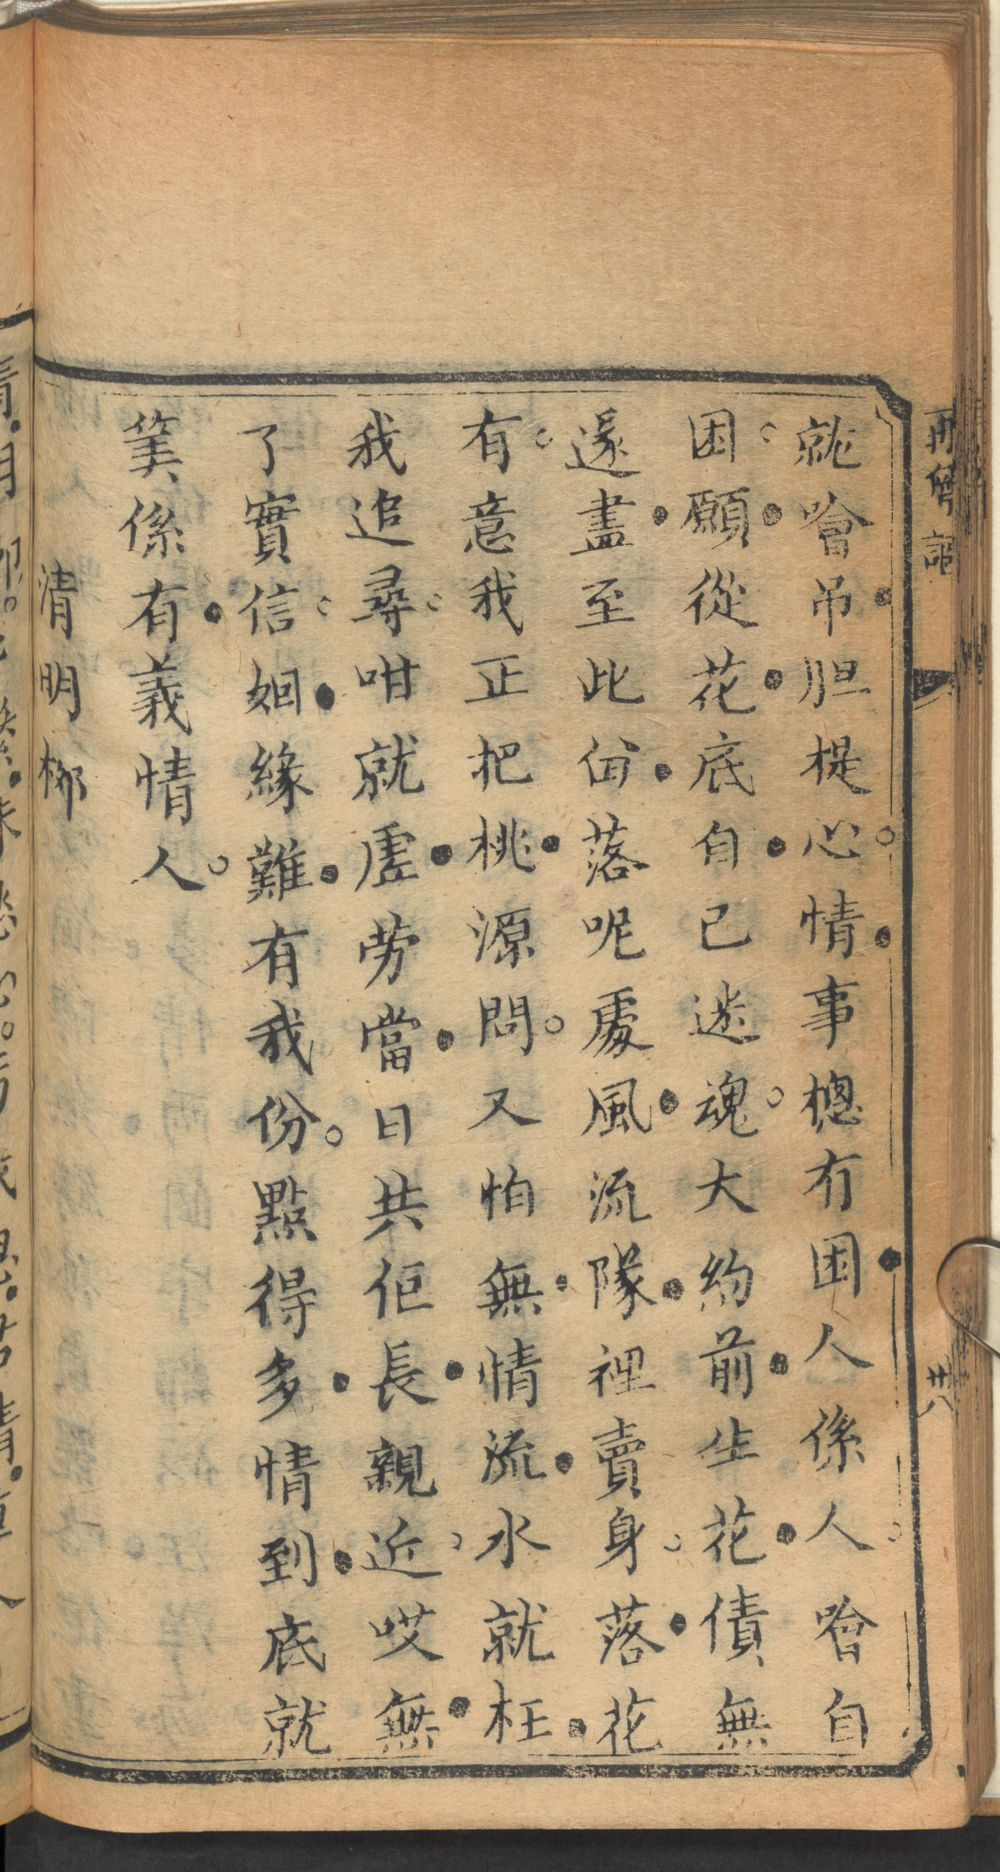 就噲吊胆提心情事樬冇困人係人噲自
困願從花底自己迷魂大約前生花債無
遂盡至此佰落呢處風流隊裡賣身落花
有意我正把桃源問又怕無情流水就枉
我追尋咁就虛勞當日共佢長親近哎無
了實信姻緣難有我份點得多情到底就
筭係有義情人
清明柳